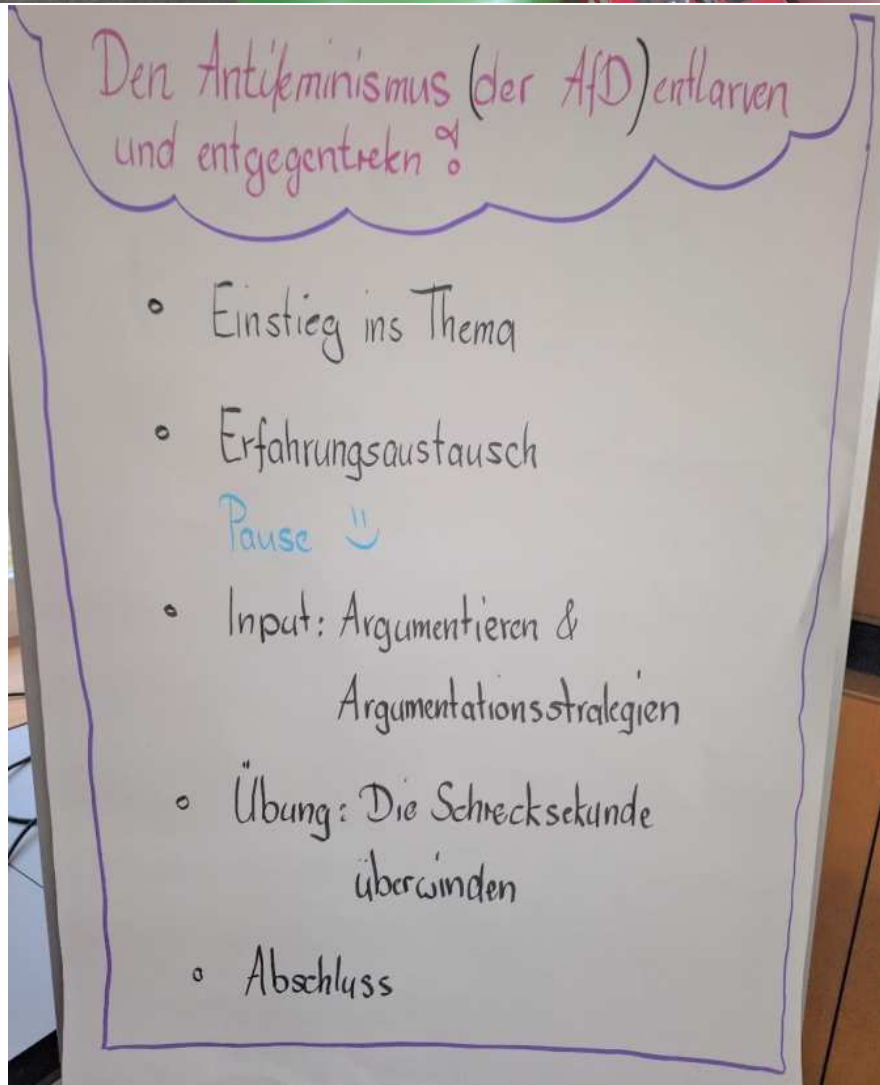 Den Antifeminismus (der AfD) entlarven
und entgegentreten!
• Einstieg ins Thema
• Erfahrungsaustausch
Pause
• Input: Argumentieren &
Argumentationsstrategien
• Übung: Die Schrecksekunde
überwinden
• Abschluss